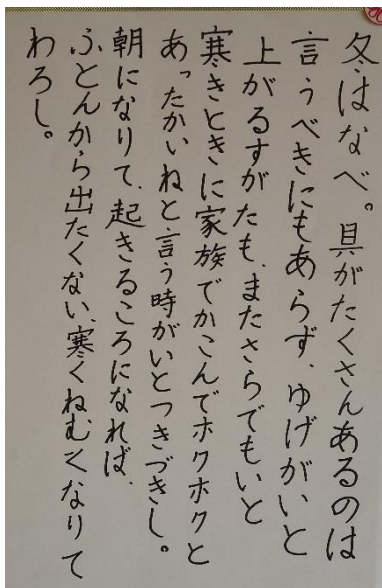 冬はなべ。具がたくさんあるのは
言うべきにもあらず、ゆげがいと
上がるすがたも、またさらでもいと
寒きときに家族でかこんでホクホクと
あったかいねと言う時がいとつきづきし。
朝になりて、起きるころになれば、
ふとんから出たくない、寒くねむくなりて
わろし。